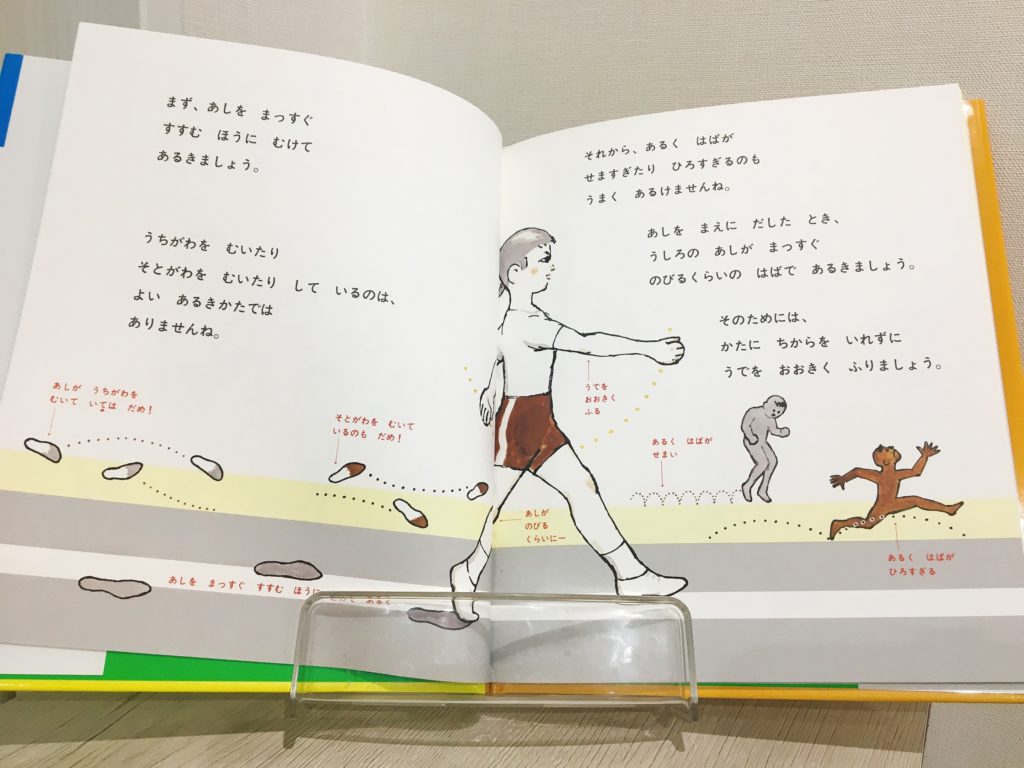 まず、あしを　まっすぐ
すすむ　ほうに　むけて
あるきましょう。
うちがわを　むいたり
そとがわを　むいたり　して　いるのは、
よい　あるきかたでは
ありませんね。
あしが　うちがわを
むいて　いては　だめ！
そとがわを　むいて
いるのも　だめ！
あしを　まっすぐ　すすむ　ほうに
むけて　あるく
それから、あるく　はばが
せますぎたり　ひろすぎるのも
うまく　あるけませんね。
あしを　まえに　だした　とき、
うしろの　あしが　まっすぐ
のびるくらいの　はばで　あるきましょう。
そのためには、
かたに　ちからを　いれずに
うでを　おおきく　ふりましょう。
うでを
おおきく
ふる
あるく　はばが
せまい
あしが
のびる
くらいにー
あるく　はばが
ひろすぎる